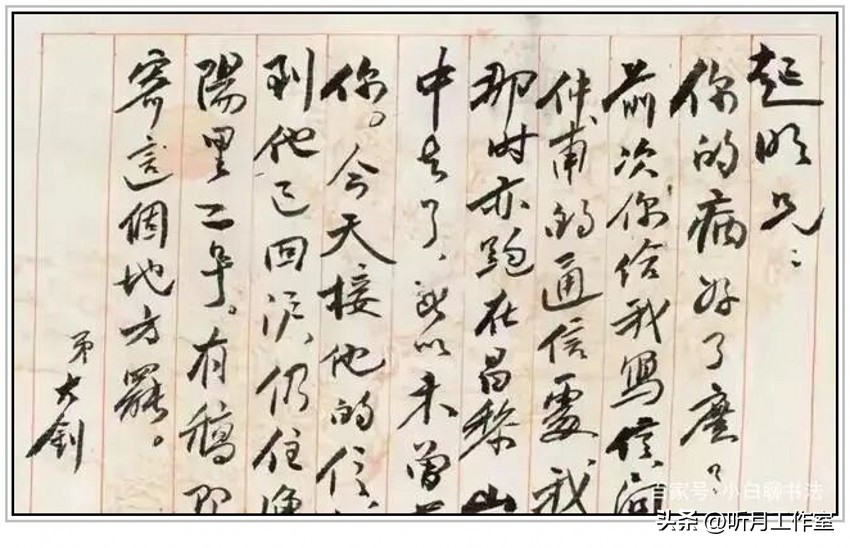 起明兄：
你的病好了麽？
前次你给我寫信问
仲甫的通信處，我
那时亦跑在昌黎山
中去了，所以未曾
你。今天接他的信，
到他已回沪，仍住渔
陽里二号。有稿即
寄這個地方罷。
弟大钊
百家号/小白聊书法
头条 @听月工作室